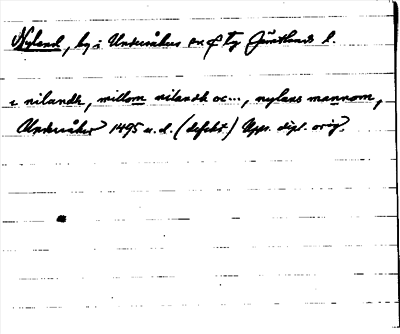 Nyland, by i Undersåkers sn o f Tg Jämtlands l.
i nilandh, millom nilandh oc..., nylans mannom,
Undersåker 1495 u.d. (defekt.) Upps. dipl. orig.